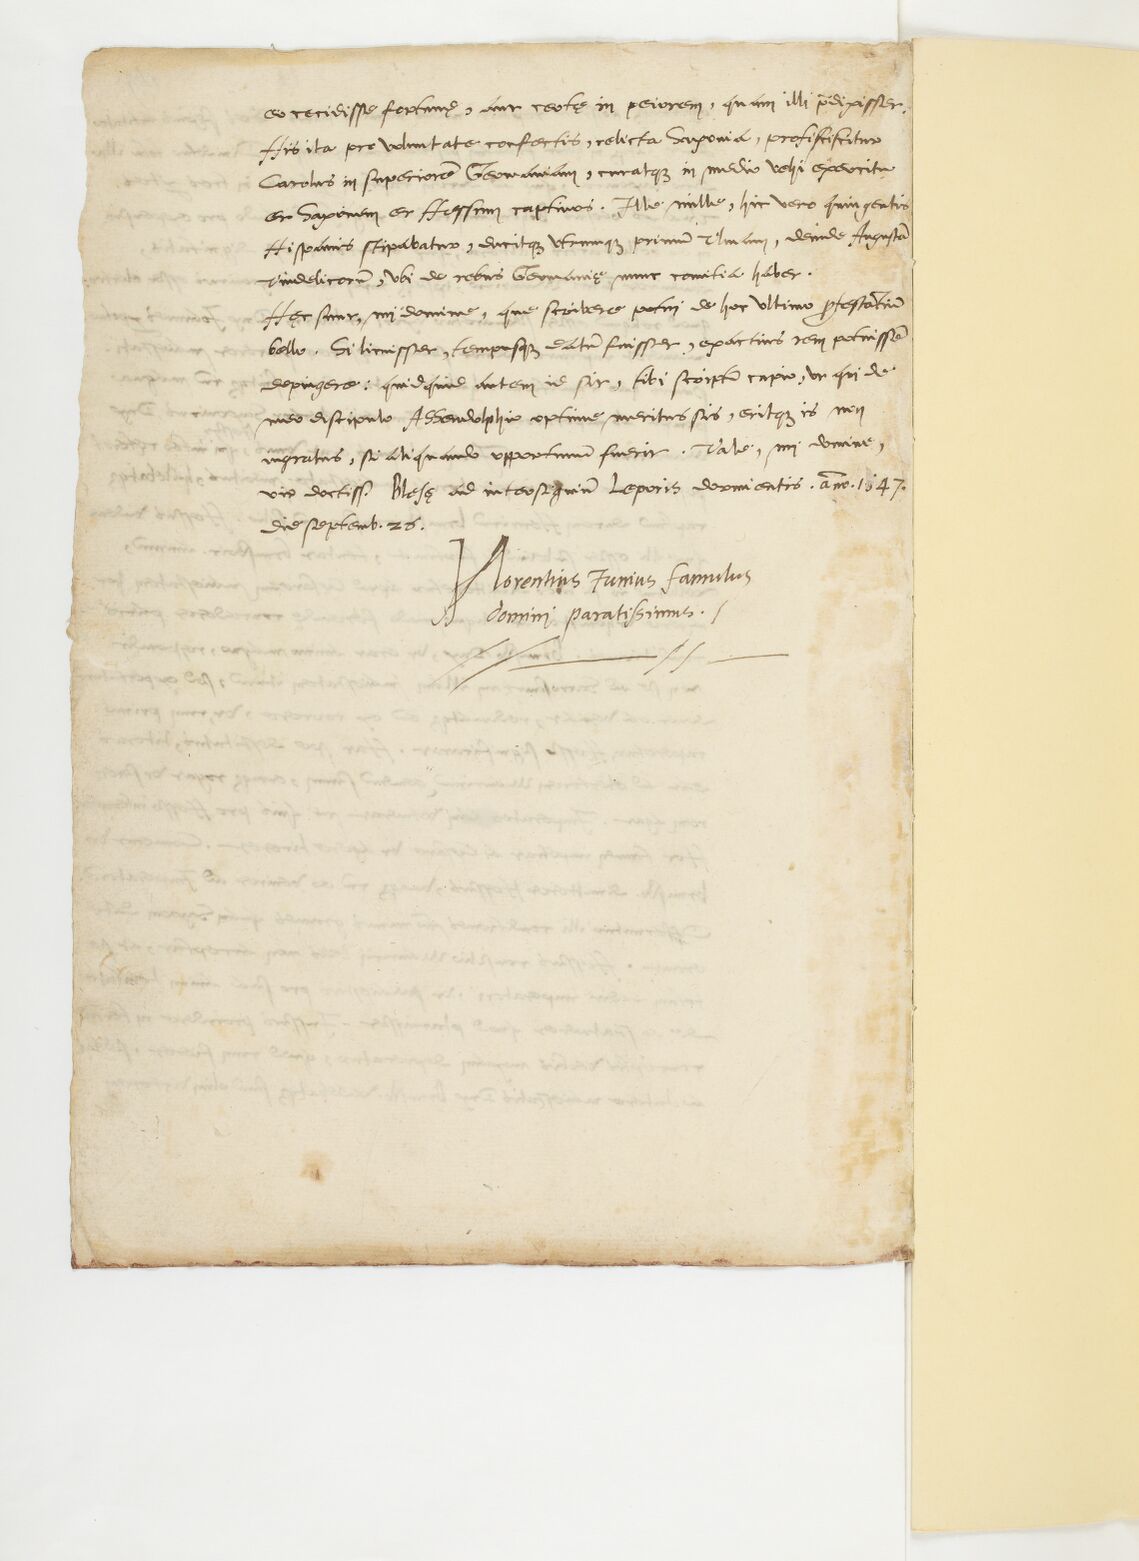 eo cecidisse fortunę, aut certe in peiorem, quam illi p̃dixisset.
His ita pro voluntate confectis, relicta Saxonia, proficiscitur
Carolus in superiorẽ Germaniam, curatqꝫ in medio vehi exercitu
et Saxonem et Hessum captivos. Ille mille, hic vero quingentis
Hispanis stipabatur, ducitqꝫ utrumqꝫ primũ Vlmam, deinde Augustã
Vindelicorũ, ubi de rebus Germanię nunc comitia habet.
Hęc sunt, mi domine, que scribere potui de hoc ultimo ꝓtestantiũ
bello. Si licuisset, tempusqꝫ datũ fuisset, exactius rem potuissẽ
depingere: quidquid autem id sit, tibi scriptũ cupio, ut qui de
meo discipulo Assendolphio optime meritus sis, eritqꝫ is non
ingratus, si aliquando opportunũ fuerit. Vale, mi domine,
vir doctiss. Blesę ad intersigniũ Leporis dormientis. año. 1547.
die septemb. 26.
Florentius Junius famulus
domini paratissimus.